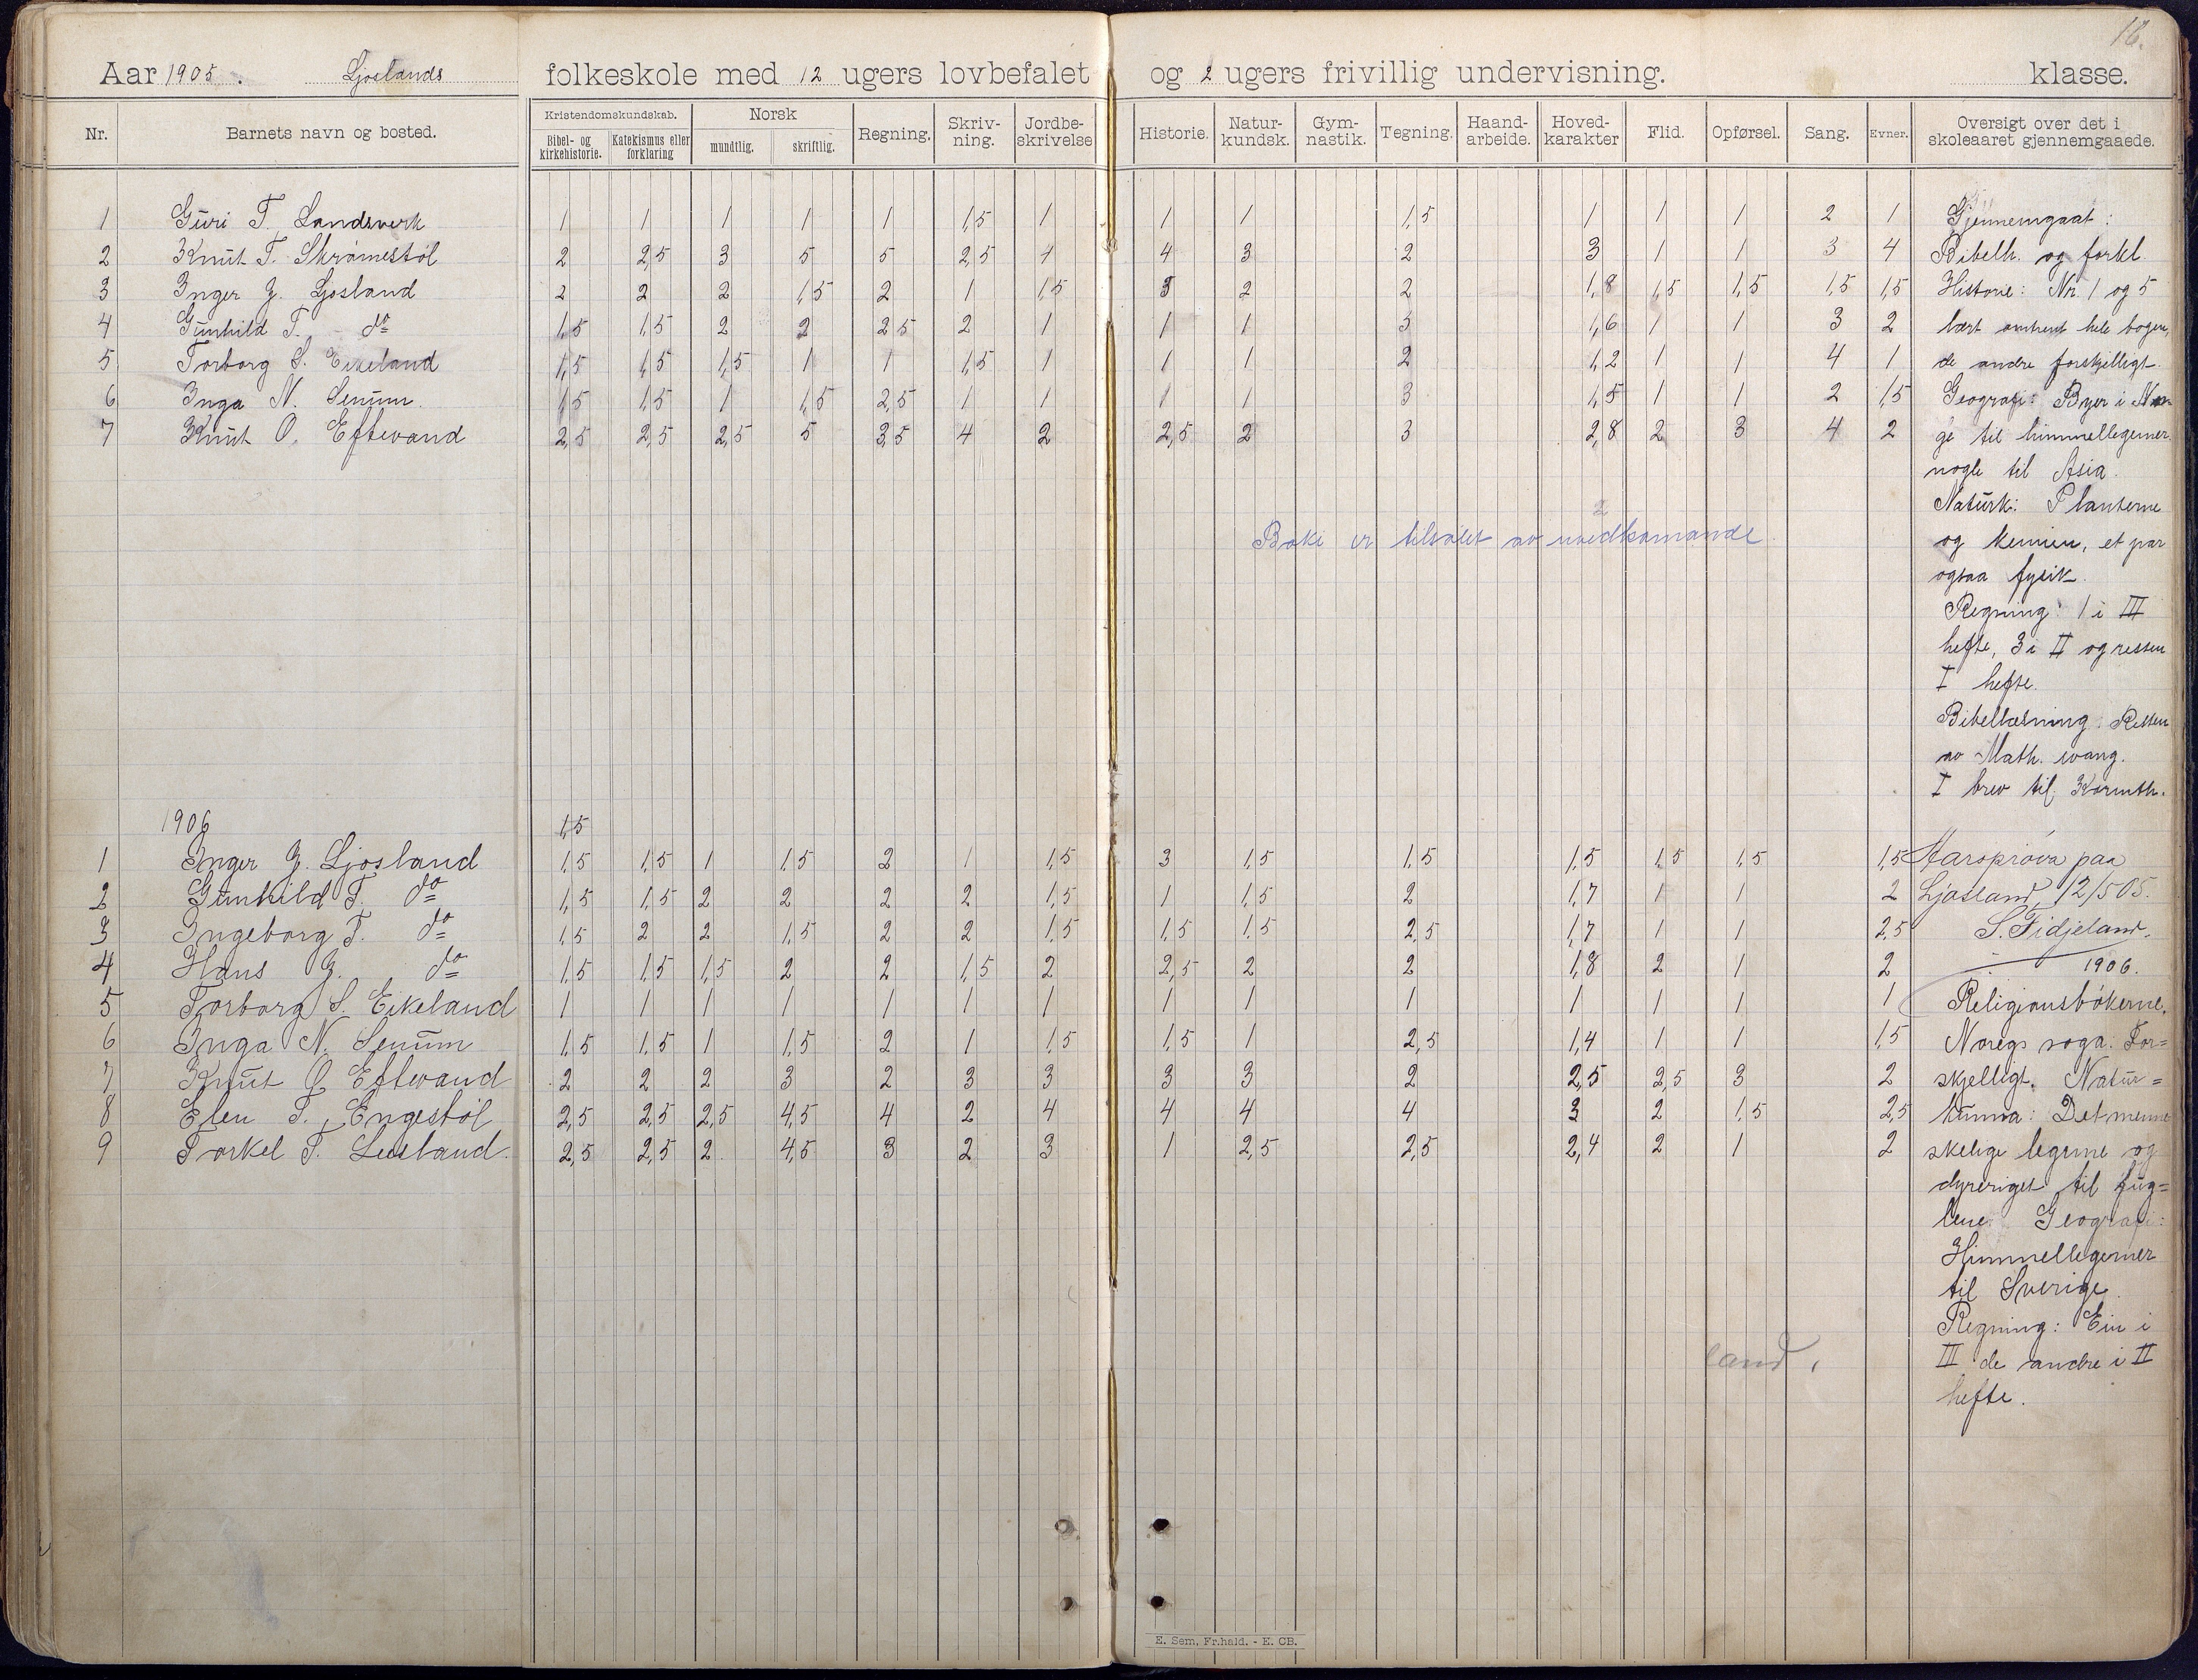 16.
Aar 1905. Ljoslands folkeskole med 12 ugers lovbefalet og 2 ugers frivillig undervisning. klasse.
Nr. Barnets navn og bosted. Kristendomskundskab. Bibel- og kirkehistorie. Katekismus eller forklaring Norsk mundtlig. skriftlig. Regning. Skriv-ning. Jordbe-skrivelse Historie. Natur-kundsk. Gym-nastik. Tegning. Haand-arbeide. Hoved-karakter Flid. Opførsel. Sang. Evner. Oversigt over det i skoleaaret gjennemgaaede.
1 Guri T. Landsverk 1 1 1 1 1 1,5 1 1 1 1,5 1 1 1 2 1 Gjennemgaat:
2 Knut T. Skråmestøl 2 2,5 3 5 5 2,5 4 4 3 2 3 1 1 3 4 Bibelh. og forkl.
3 Inger G. Ljosland 2 2 2 1,5 2 1 1,5 3 2 2 1,8 1,5 1,5 1,5 1,5 Historie: Nr 1 og 5
4 Gunhild T. do 1,5 1,5 2 2 2,5 2 1 1 1 3 1,6 1 1 3 2 lært omtrent hele bogen,
5 Torborg S. Eikeland 1,5 1,5 1,5 1 1 1,5 1 1 1 2 1,2 1 1 4 1 de andre forskjelligt.
6 Inga N. Senum. 1,5 1,5 1 1,5 2,5 1 1 1 1 3 1,5 1 1 2 1,5 Geografi: Byer i Nor-
7 Knut O. Eftevand 2,5 2,5 2,5 5 3,5 4 2 2,5 2 3 2,8 2 3 4 2 ge til himmellegemer
nogle til Asia.
Naturk: Planterne
2
Boki er tilsølet av uvedkomande
og kemien, et par
ogsaa fysik.
Regning: 1 i III
hefte, 3 i II og resten
I hefte.
Bibellæsning: Resten
av Math. evang.
I brev til Korinth.
1906 1,5
1 Inger G. Ljosland 1,5 1,5 1 1,5 2 1 1,5 3 1,5 1,5 1,5 1,5 1,5 1,5 Aarsprøva paa
2 Gunhild T. do 1,5 1,5 2 2 2 2 1,5 1 1,5 2 1,7 1 1 2 Ljosland, 12/5 05.
3 Ingeborg T. do 1,5 2 2 1,5 2 2 1,5 1,5 1,5 2,5 1,7 1 1 2,5 S. Fidjeland.
4 Hans G. do 1,5 1,5 1,5 2 2 1,5 2 2,5 2 2 1,8 2 1 2 1906.
5 Torborg S. Eikeland 1 1 1 1 1 1 1 1 1 1 1 1 1 1 Religionsbøkerne.
6 Inga N. Senum 1,5 1,5 1 1,5 2 1 1,5 1,5 1 2,5 1,4 1 1 1,5 Noregs soga: For=
7 Knut O. Eftevand 2 2 2 3 2 3 3 3 3 2 2,5 2,5 3 2 skjelligt. Natur=
8 Elen T. Engestøl 2,5 2,5 2,5 4,5 4 2 4 4 4 4 3 2 1,5 2,5 kunna: Det menne
9 Torkel T. Lusland. 2,5 2,5 2. 4,5 3 2 3 1 2,5 2,5 2,4 2 1 2 skelige legeme og
dyreriget til fug=
lene. Geografi:
Himmellegemer
til Sverige.
Regning: Ein i
land. III de andre i II
hefte.
E. Sem, Fr.hald. - E. CB.